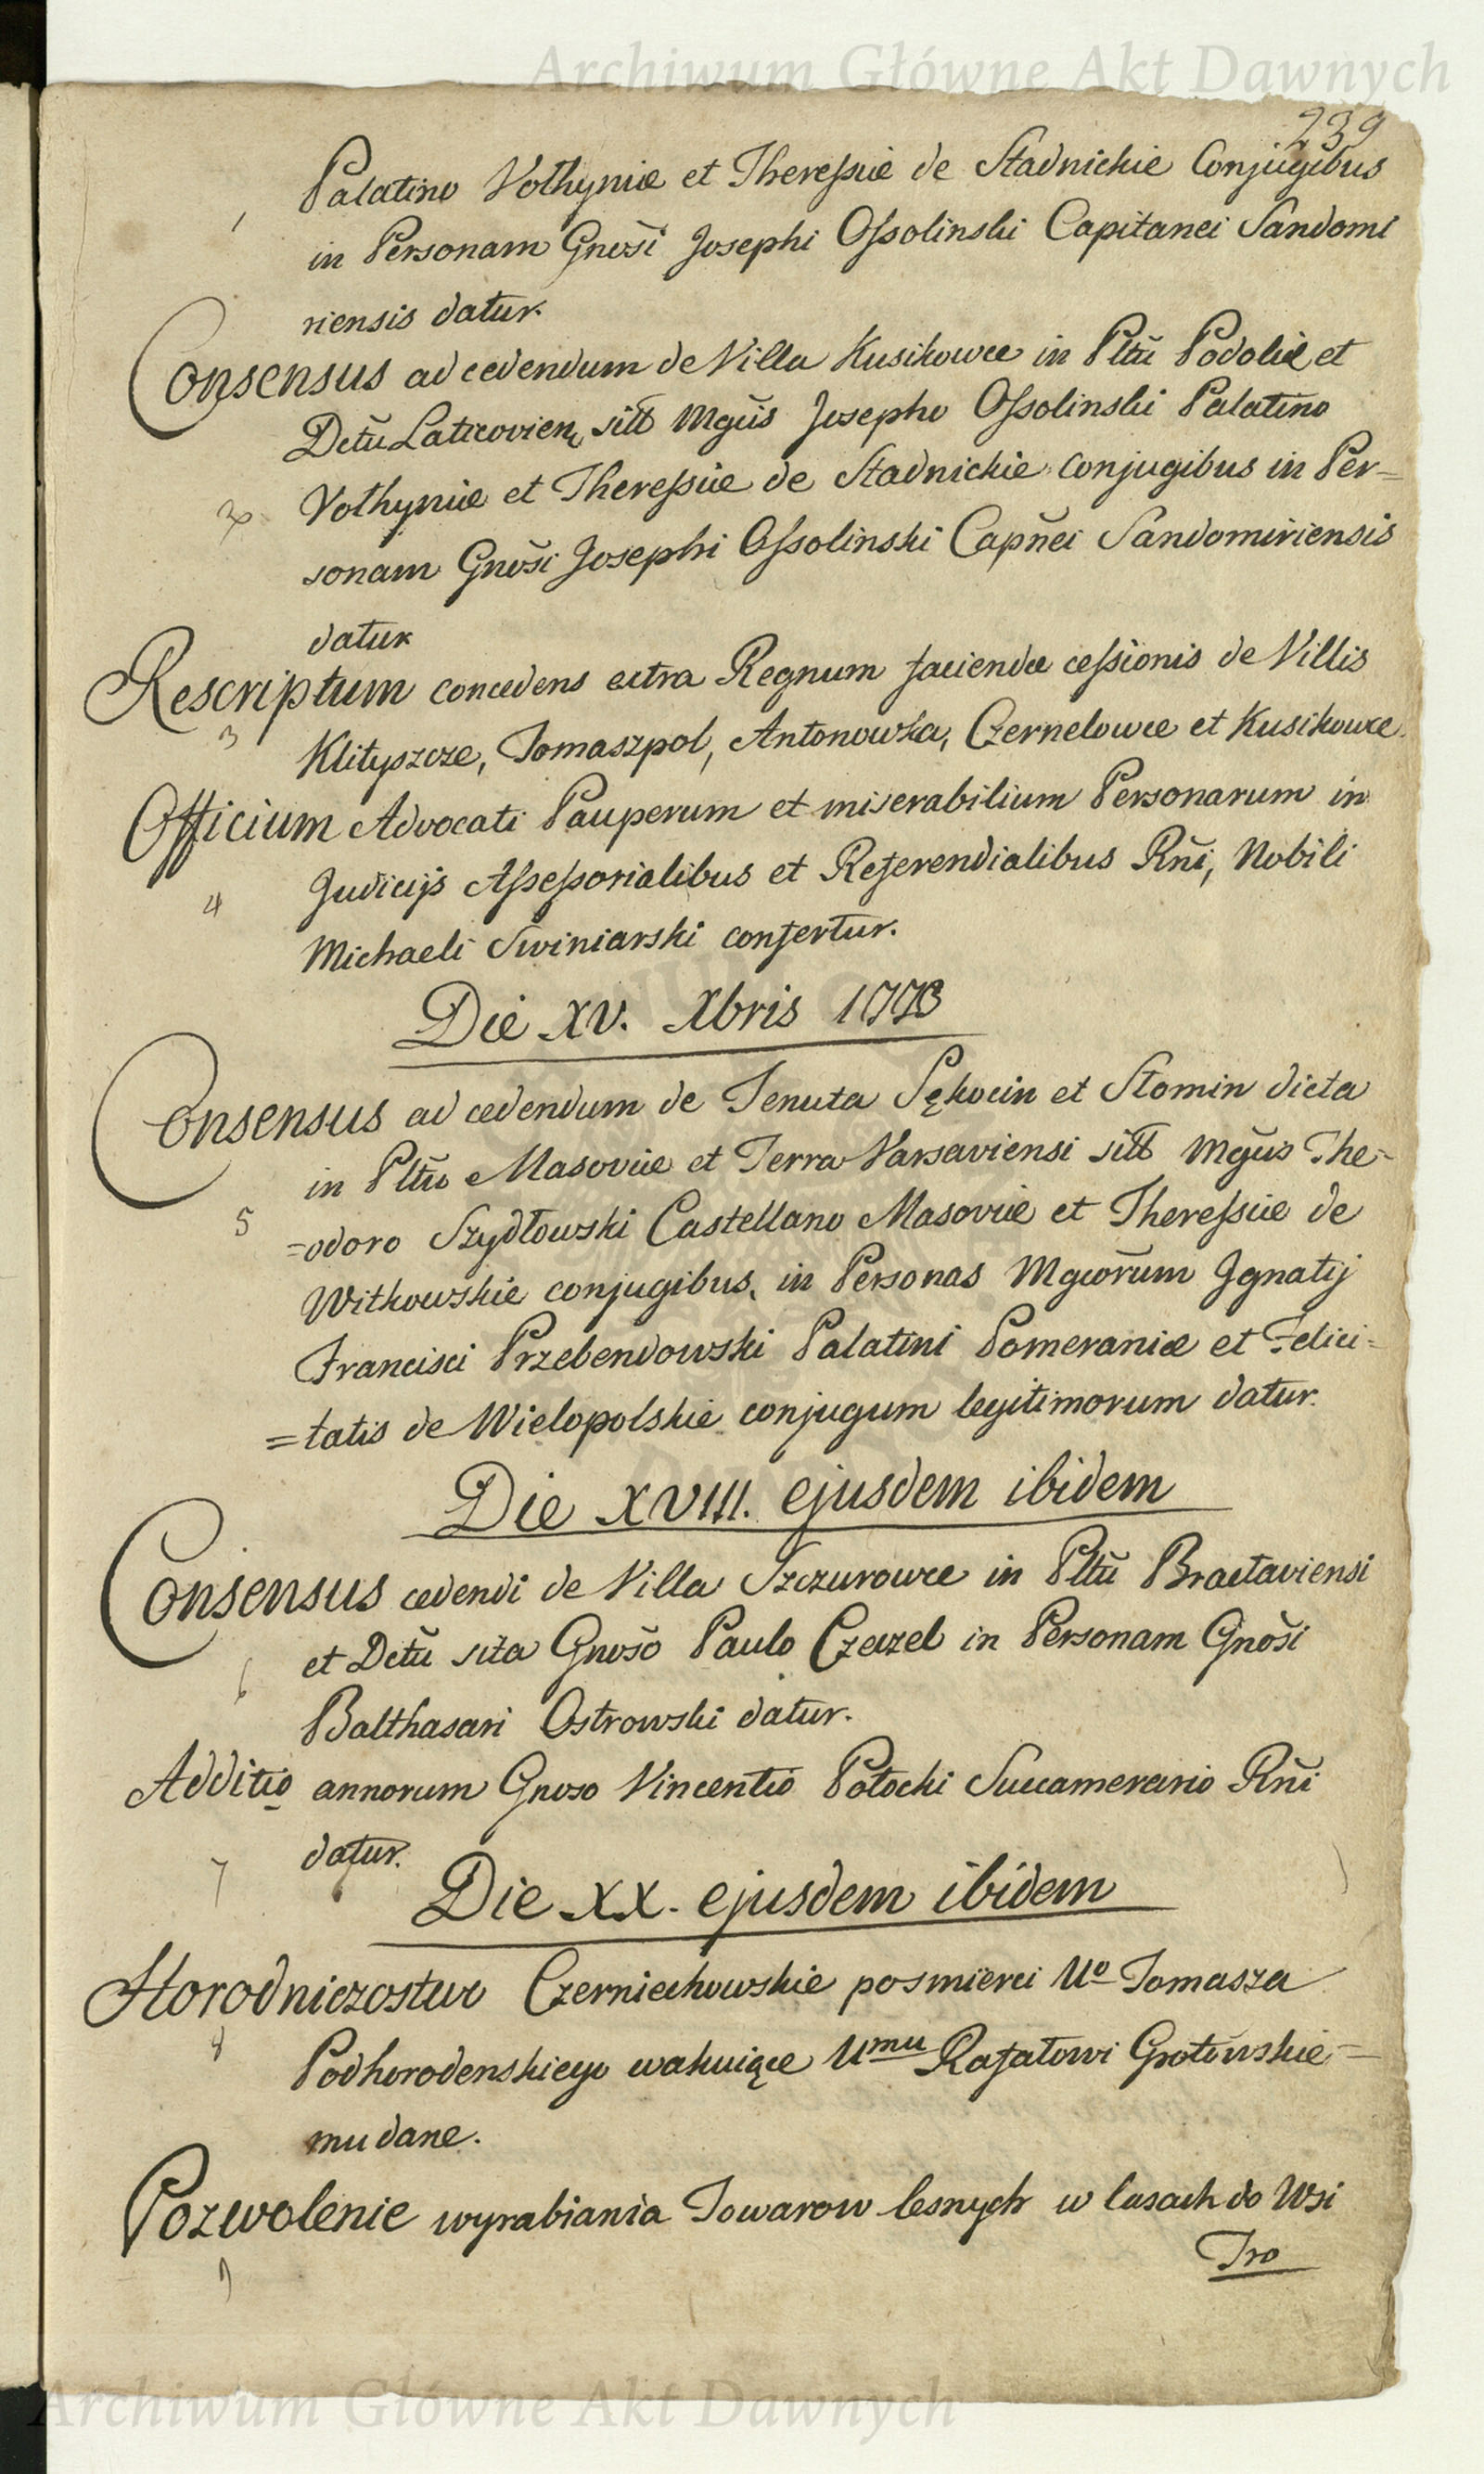 Archiwum Główne Akt Dawnych
239
Palatino Volhyniæ et Theressiæ de Stadnickie Conjugibus
1
in Personam Gnosi Josephi Ossolinski Capitanei Sandomi
riensis datur.
Consensus ad cedendum de Villa Kusikowce in Pltũ Podoliæ et
Dctũ Laticovien, sitt Mgũis Josepho Ossolinski Palatino
2
Volhyniæ et Theressiæ de Stadnickie conjugibus in Per=
sonam Gnõsi Josephi Ossolinski Capñei Sandomiriensis
datur
Rescriptum concedens extra Regnum faciendæ cessionis de Villis
3
Klityszcze, Tomaszpol, Antonowka, Czernelowce et Kusikowce.
Officium Advocati Pauperum et miserabilium Personarum in
4
Judicijs Assessorialibus et Referendialibus Rñi, Nobili
Michaeli Swiniarski confertur.
Die XV. Xbris 1773
Consensus ad cedendum de Tenuta Sękocin et Slomin dicta
in Pltũ Masoviæ et Terra Varsaviensi sitt Mgũis The=
5
=odoro Szydłowski Castellano Masoviæ et Theressiæ de
Witkowskie conjugibus, in Personas Mgcorum Ignatij
Francisci Przebendowski Palatini Pomeraniæ et Felici=
=tatis de Wielopolskie conjugum legitimorum datur.
Die XVIII. ejusdem ibidem
Consensus cedendi de Villa Szczurowce in Pltũ Braclaviensi
6
et Dctũ sita Gnõso Paulo Czeczel in Personam Gnõsi
Balthasari Ostrowski datur.
Additio annorum Gnoso Vincentio Potocki Succamerario Rñi
7
datur.
Die XX. ejusdem ibidem
Horodniczostwo Czerniechowskie po smierci Uo Tomasza
8
Podhorodenskiego wakuiące Umu Rafałowi Grotowskie=
mu dane.
Pozwolenie wyrabiania Towarow lesnych w lasach do Wsi
9
Tro
Archiwum Główne Akt Dawnych